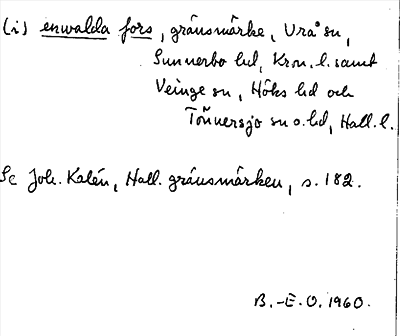 (i) enwalda fors, gränsmärke, Vrå sn,
Sunnerbo hd, Kron. l. samt
Veinge sn, Höks hd och
Tönnersjö sn o. hd, Hall. l.
Se Joh. Kalén, Hall. gränsmärken, s. 182.
B.-E. O. 1960.